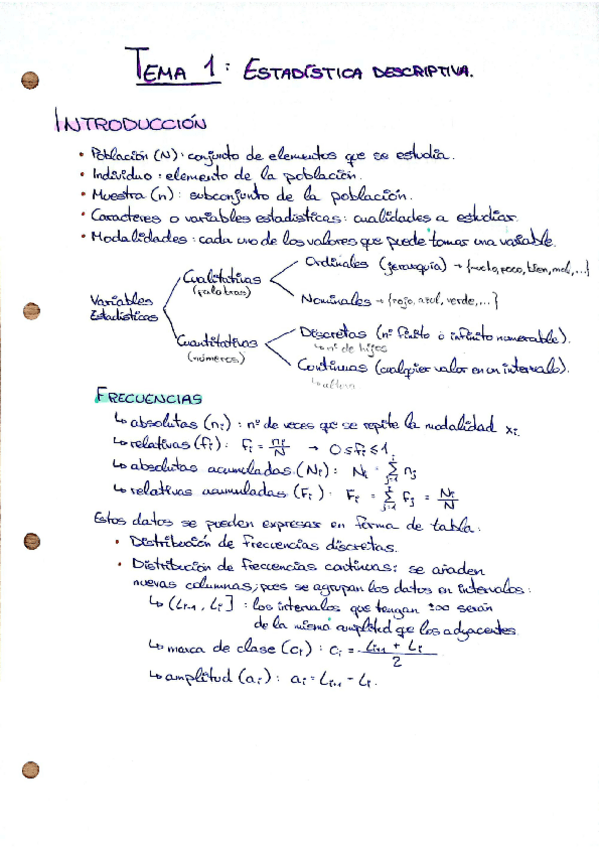 TEMA 1: ESTADÍSTICA DESCRIPTIVA.
INTRODUCCIÓN
• Población (N): conjunto de elementos que se estudia.
• Individuo: elemento de la población.
• Muestra (n): subconjunto de la población.
• Caracteres o variables estadísticas: cualidades a estudiar.
• Modalidades: cada uno de los valores que puede tomar una variable.
Variables Estadísticas
Cualitativas (palabras)
Ordinales (jerarquía) → {malo, poco, bien, mal,...}
Nominales → {rojo, azul, verde,...}
Cuantitativas (números)
Discretas (nº finito o infinito numerable).
↳ nº de hijos
Continuas (cualquier valor en un intervalo).
↳ altura
FRECUENCIAS
↳ absolutas (nᵢ): nº de veces que se repite la modalidad xᵢ.
↳ relativas (fᵢ): fᵢ = nᵢ/N → 0 ≤ fᵢ ≤ 1.
↳ absolutas acumuladas (Nᵢ): Nᵢ = Σ nⱼ
↳ relativas acumuladas (Fᵢ): Fᵢ = Σ fⱼ = Nᵢ/N
Estos datos se pueden expresar en forma de tabla:
• Distribución de frecuencias discretas.
• Distribución de frecuencias continuas: se añaden
nuevas columnas, pues se agrupan los datos en intervalos:
↳ (Lᵢ₋₁, Lᵢ]: los intervalos que tengan ±∞ serán
de la misma amplitud que los adyacentes.
↳ marca de clase (cᵢ): cᵢ = (Lᵢ₋₁ + Lᵢ)/2
↳ amplitud (aᵢ): aᵢ = Lᵢ₋₁ - Lᵢ.